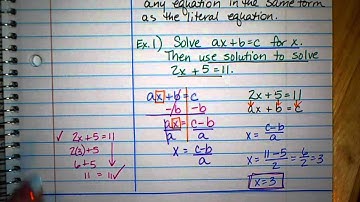 any equation in the same form
as the literal equation.
Ex. 1) Solve ax+b=c for x.
Then use solution to solve
2x + 5 = 11.
ax + b = c
-b -b
ax = c-b
a a
x = c-b
a
2x + 5 = 11
ax + b = c
x = c-b
a
x = 11-5 = 6 = 3
2 2
x = 3
✓ 2x+5 = 11
2(3)+5
6+5
11 = 11 ✓